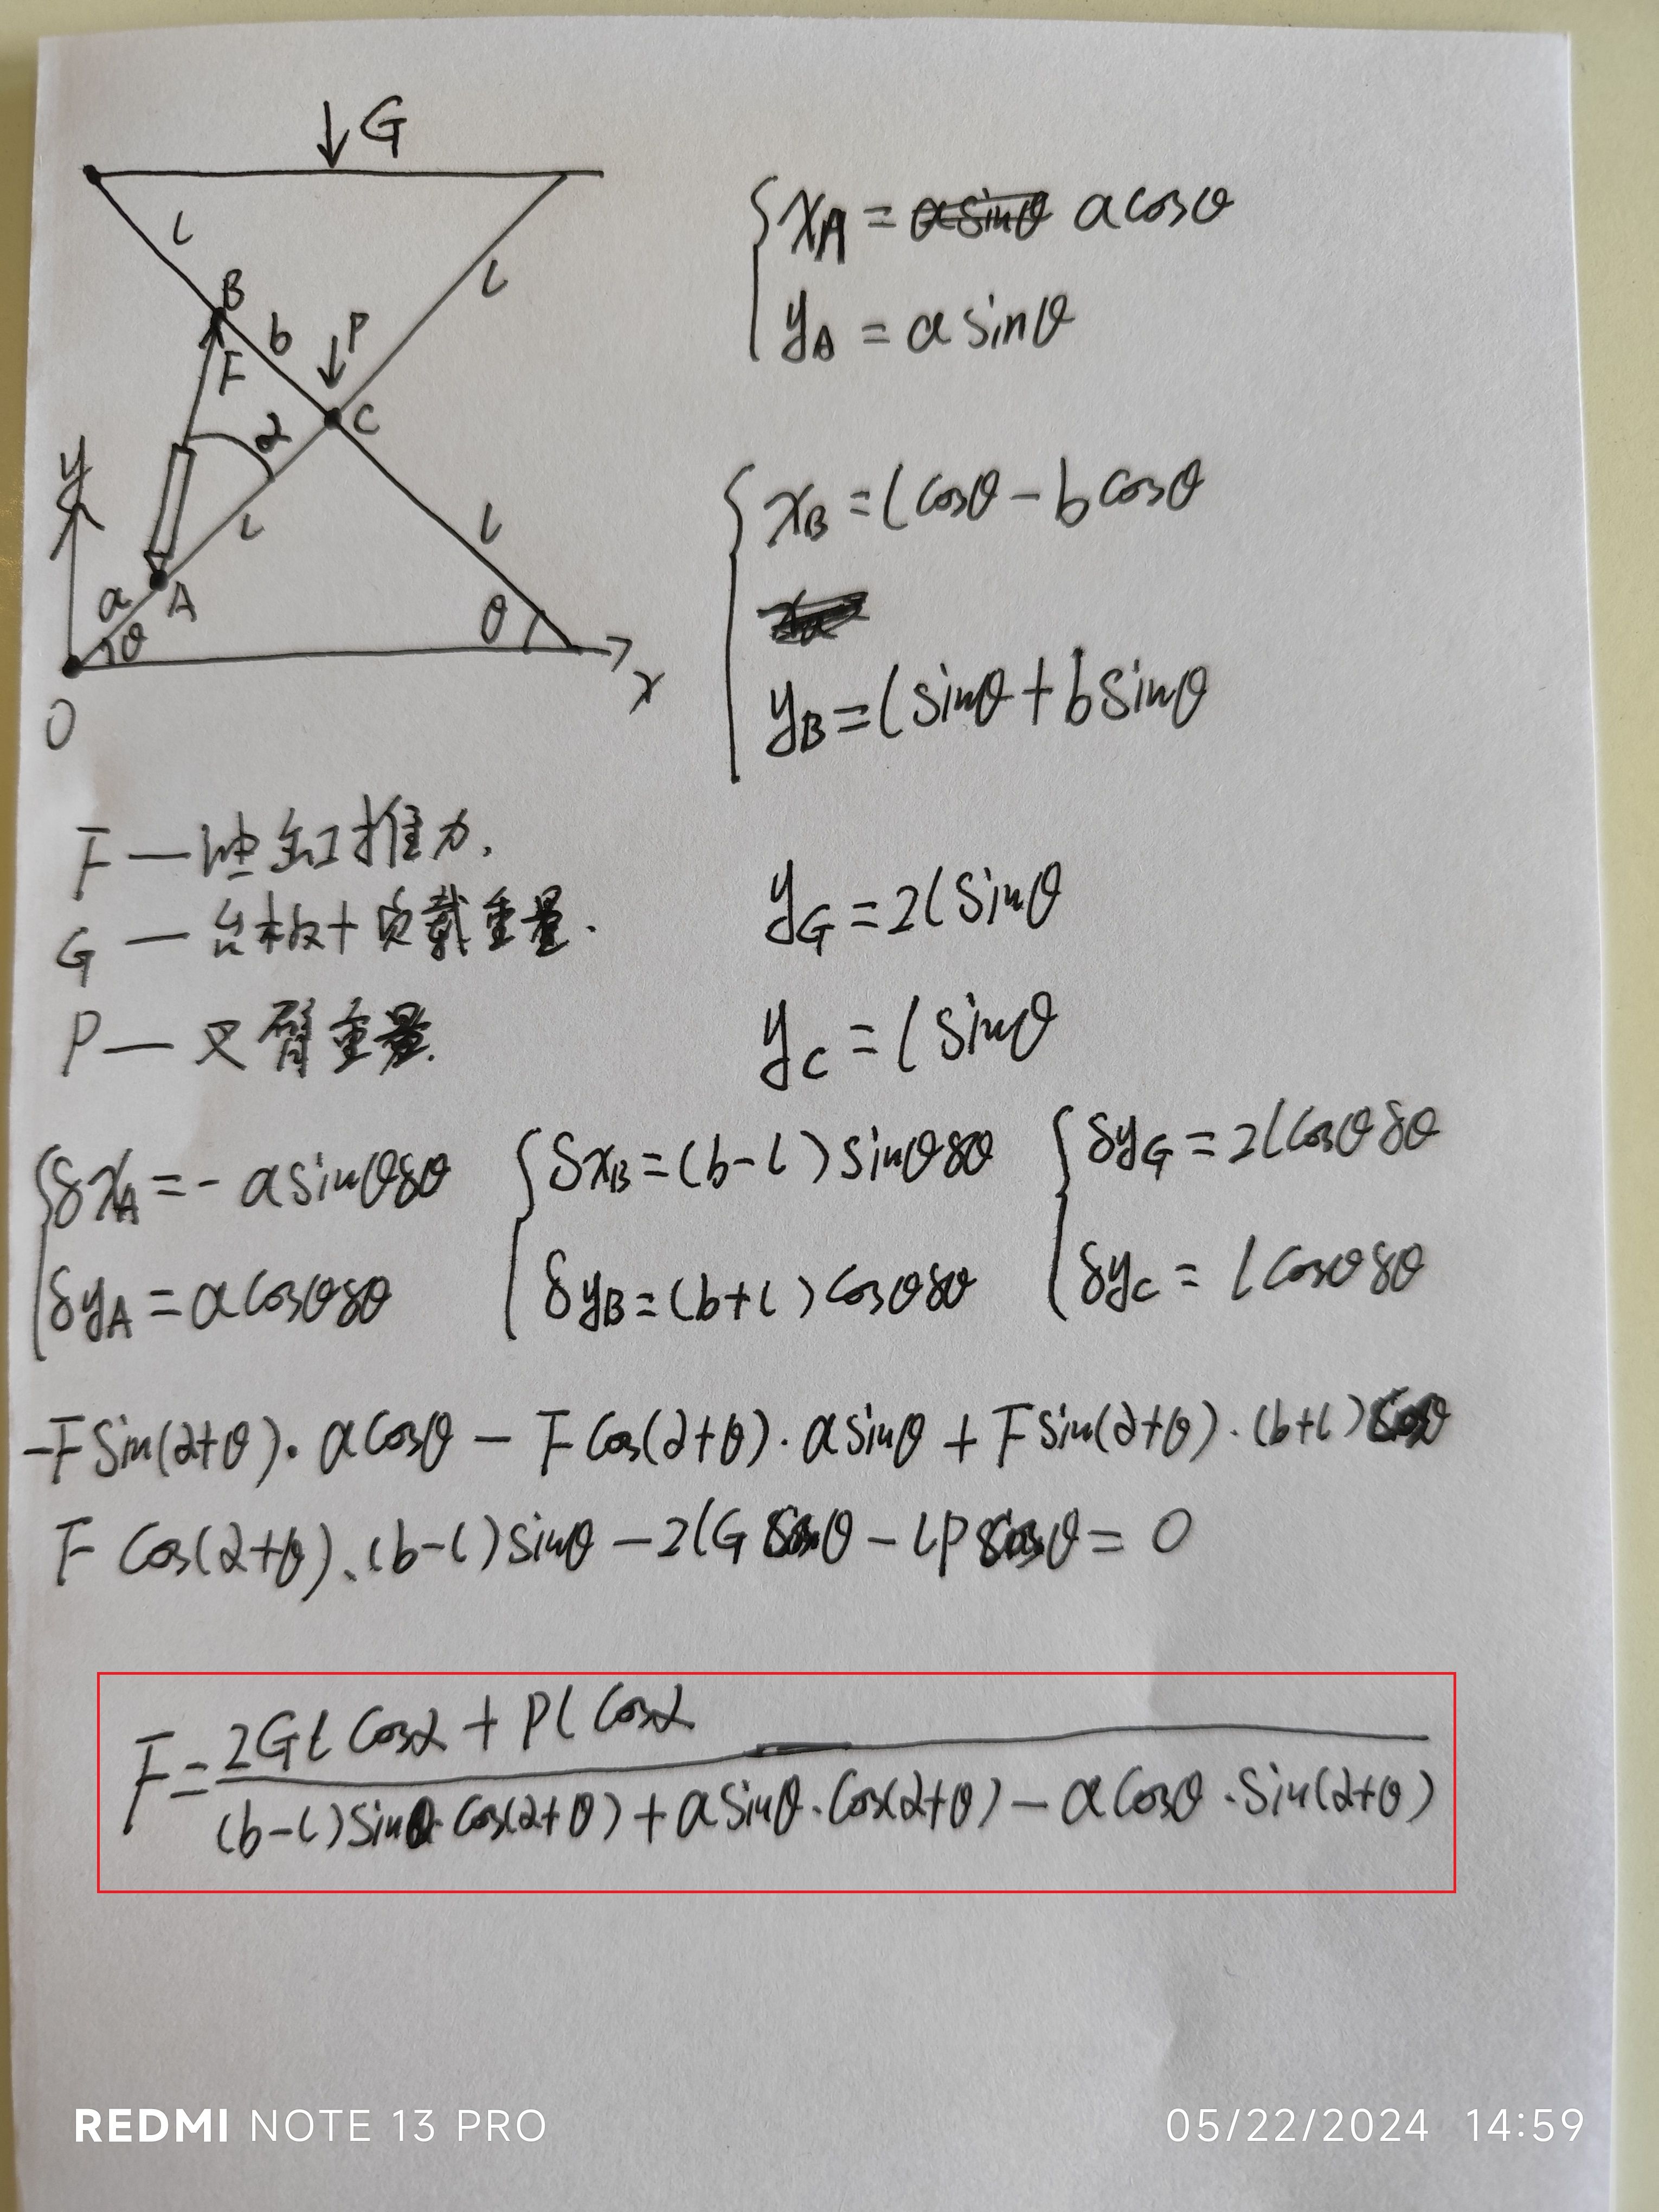 ↓G
l
B
b
↓P
l
F
α
C
y
l
l
a
A
θ
θ
x
O
x_A = a cosθ
y_A = a sinθ
x_B = l cosθ - b cosθ
y_B = l sinθ + b sinθ
F —油缸推力.
G — 台板+负载重量.
P — 叉臂重量.
y_G = 2l sinθ
y_C = l sinθ
δx_A = - a sinθδθ
δy_A = a cosθδθ
δx_B = (b-l) sinθδθ
δy_B = (b+l) cosθδθ
δy_G = 2l cosθδθ
δy_C = l cosθδθ
-F sin(α+θ)· a cosθ - F cos(α+θ)· a sinθ + F sin(α+θ)·(b+l) cosθ
F cos(α+θ)·(b-l) sinθ - 2lG cosθ - lP cosθ = 0
F = 2Gl cosα + Pl cosα
(b-l) sinθ· cos(α+θ) + a sinθ· cos(α+θ) - a cosθ· sin(α+θ)
REDMI NOTE 13 PRO
05/22/2024 14:59